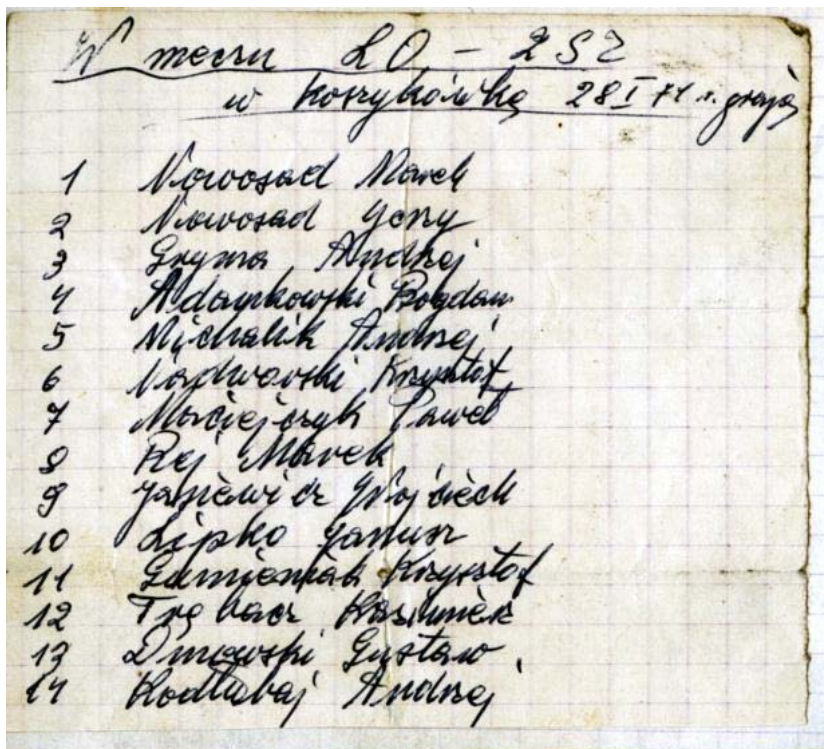 W meczu LO - ZSZ
w koszykówkę 28 I 71 r. grają
1 Nowosad Marek
2 Nowosad Jerzy
3 Gryma Andrzej
4 Adamkowski Bogdan
5 Michalik Andrzej
6 Krzysztof
7 Maciejczyk Paweł
8 Rej Marek
9 Janiewicz Wojciech
10 Lipko Janusz
11 Krzysztof
12 Trębacz Kazimierz
13 Dmowski Gustaw
14 Kodłubaj Andrzej